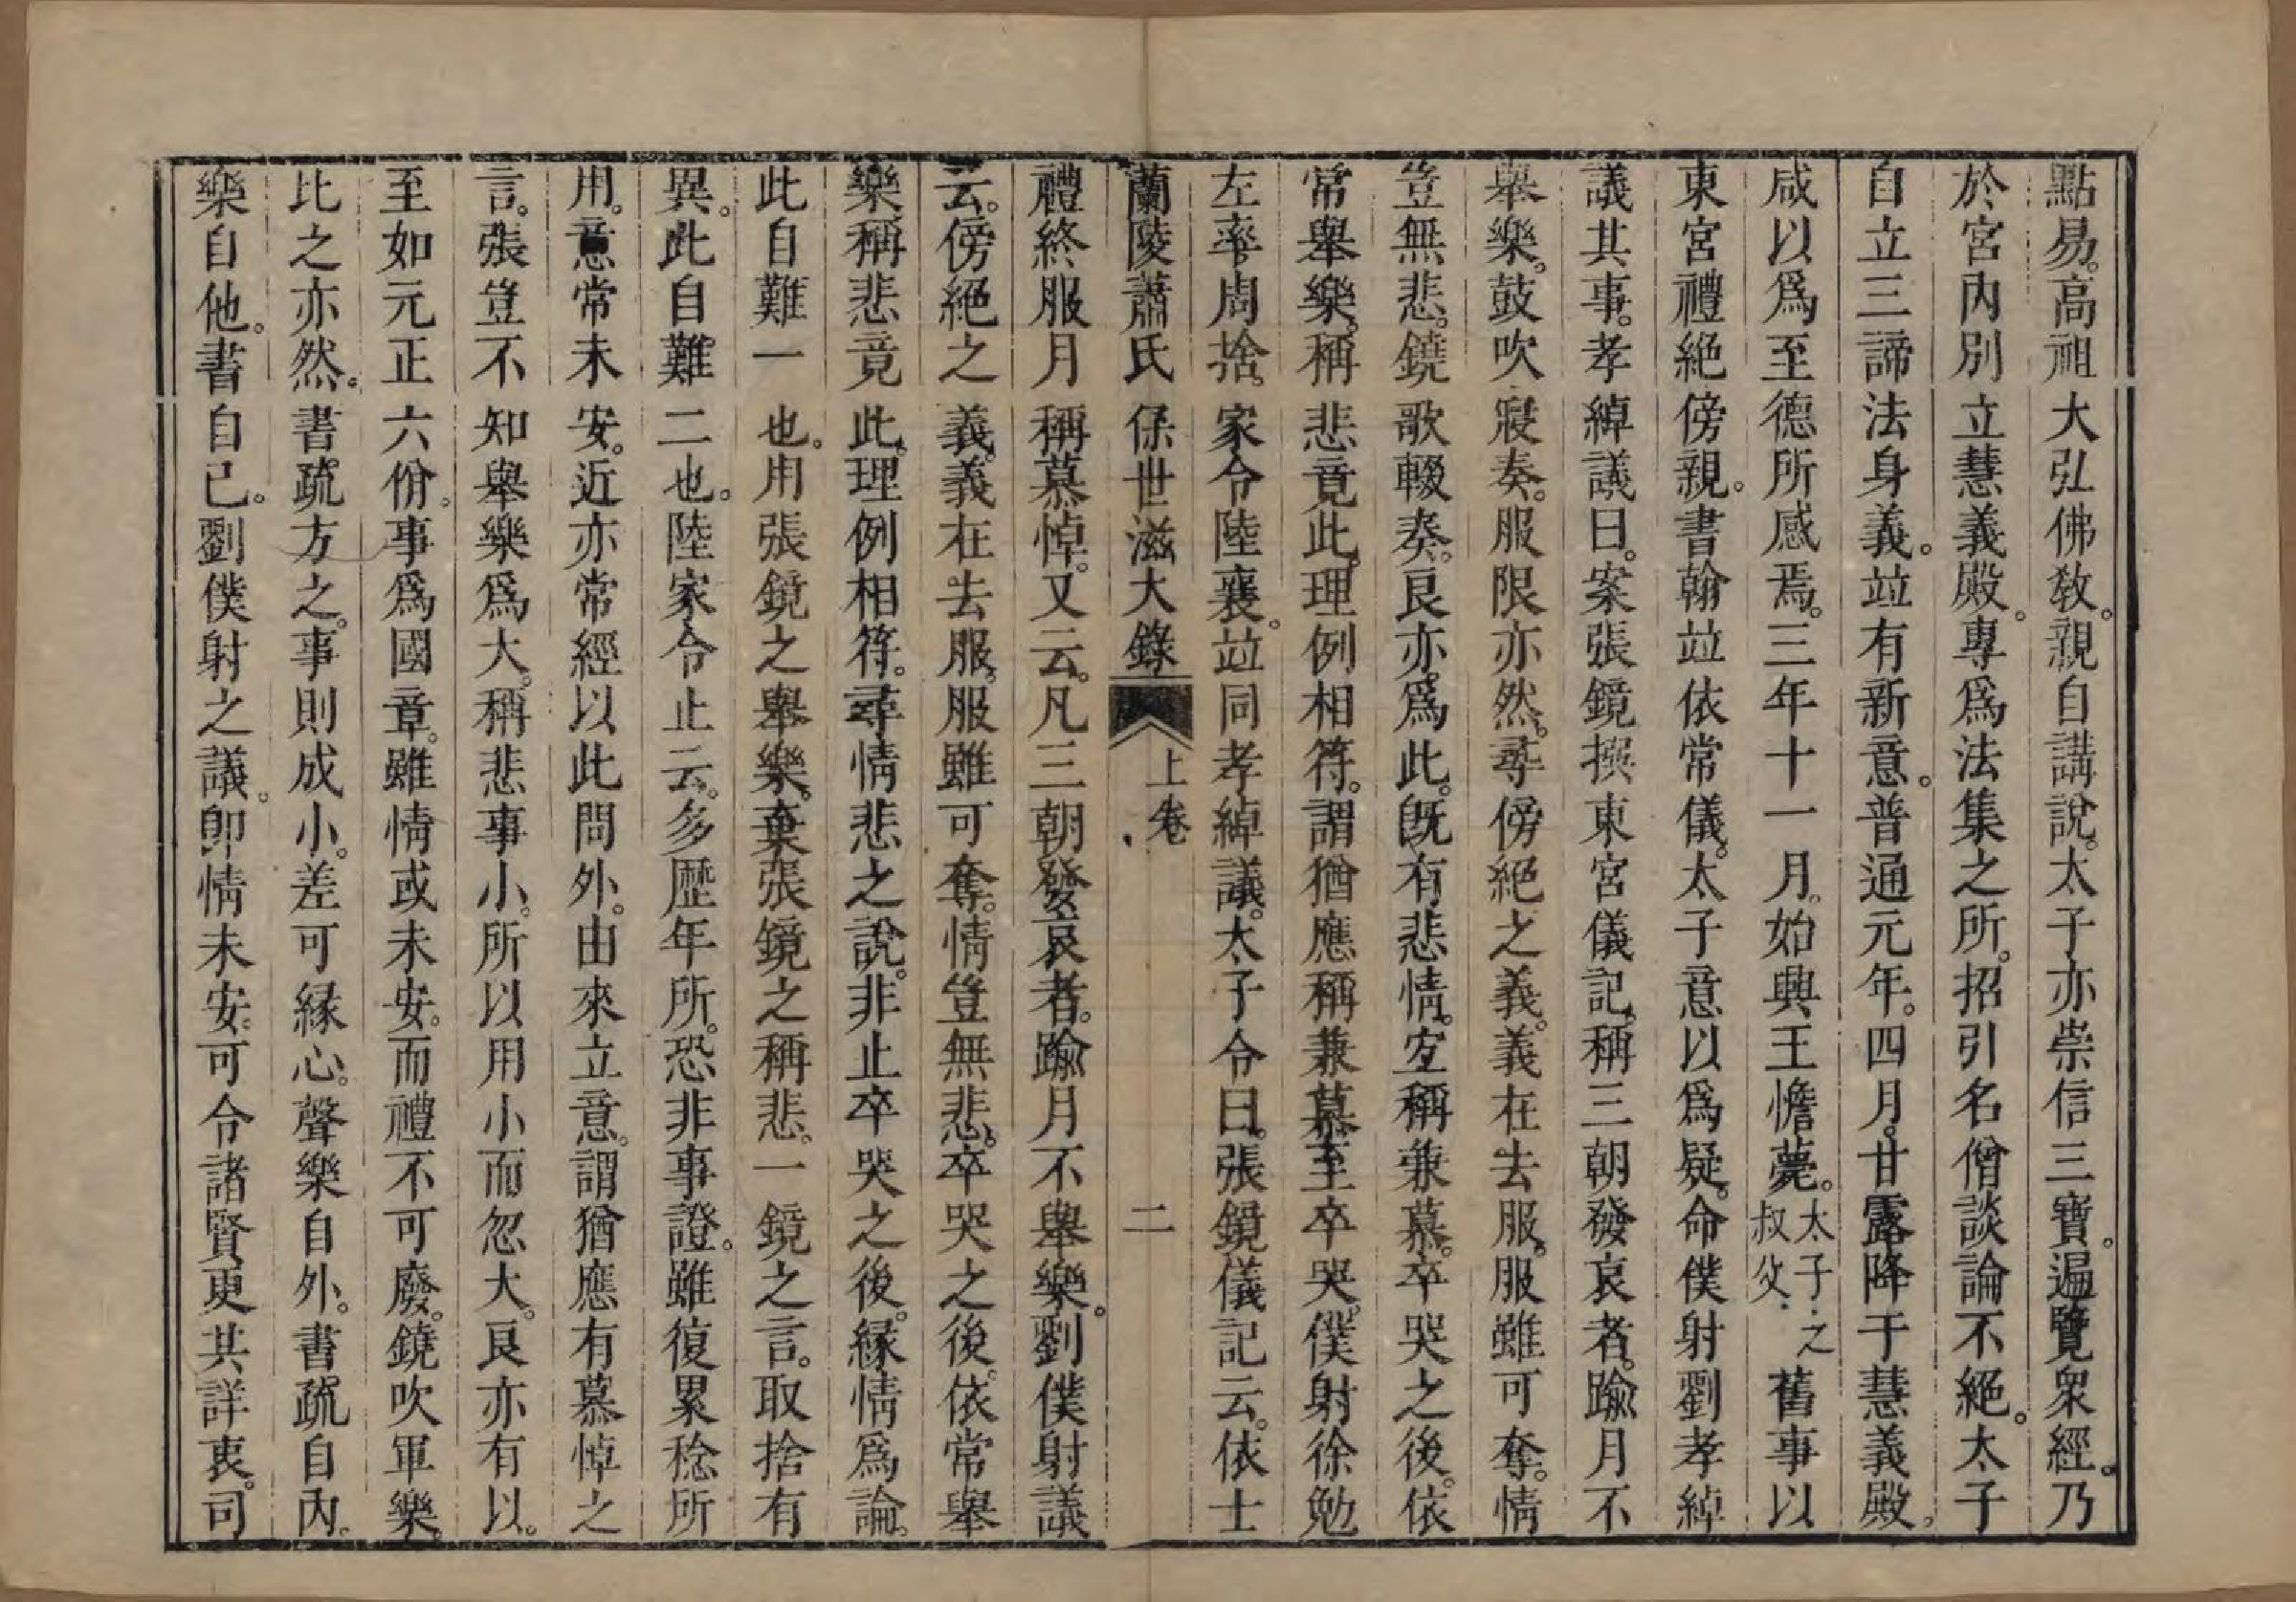 點易。高祖大弘佛敎。親自講說。太子亦崇信三寶。遍覽衆經。乃
於宮內別立慧義殿。專爲法集之所。招引名僧談論不絕。太子
自立三諦法身義。竝有新意。普通元年。四月。甘露降于慧義殿。
咸以爲至德所感焉。三年十一月。始興王憺薨。太子之叔父舊事以
東宮禮絕傍親。書翰竝依常儀。太子意以爲疑。命僕射劉孝綽
議其事。孝綽議曰。案張鏡撰東宮儀記。稱三朝發哀者。踰月不
舉樂。鼓吹寢奏。服限亦然。尋傍絕之義。義在去服。服雖可奪。情
豈無悲。鐃歌輟奏。良亦爲此。旣有悲情。宜稱兼慕。卒哭之後。依
常舉樂。稱悲竟此。理例相符。謂猶應稱兼慕至卒哭。僕射徐勉
左率周捨。家令陸襄。竝同孝綽議。太子令曰。張鏡儀記云。依士
蘭陵蕭氏係世滋大錄 上卷 二
禮終服月稱慕悼。又云。凡三朝發哀者。踰月不舉樂。劉僕射議
云。傍絕之義。義在去服。服雖可奪。情豈無悲。卒哭之後。依常舉
樂稱悲竟此。理例相符。尋情悲之說。非止卒哭之後。緣情爲論。
此自難一也。用張鏡之舉樂。棄張鏡之稱悲。一鏡之言。取捨有
異。此自難二也。陸家令止云。多歷年所。恐非事證。雖復累稔所
用。意常未安。近亦常經以此問外。由來立意。謂猶應有慕悼之
言。張豈不知舉樂爲大。稱悲事小。所以用小而忽大。良亦有以。
至如元正六佾。事爲國章。雖情或未安。而禮不可廢。鐃吹軍樂。
比之亦然。書疏方之。事則成小。差可緣心。聲樂自外。書疏自內。
樂自他。書自已。劉僕射之議。卽情未安。可令諸賢更共詳衷。司